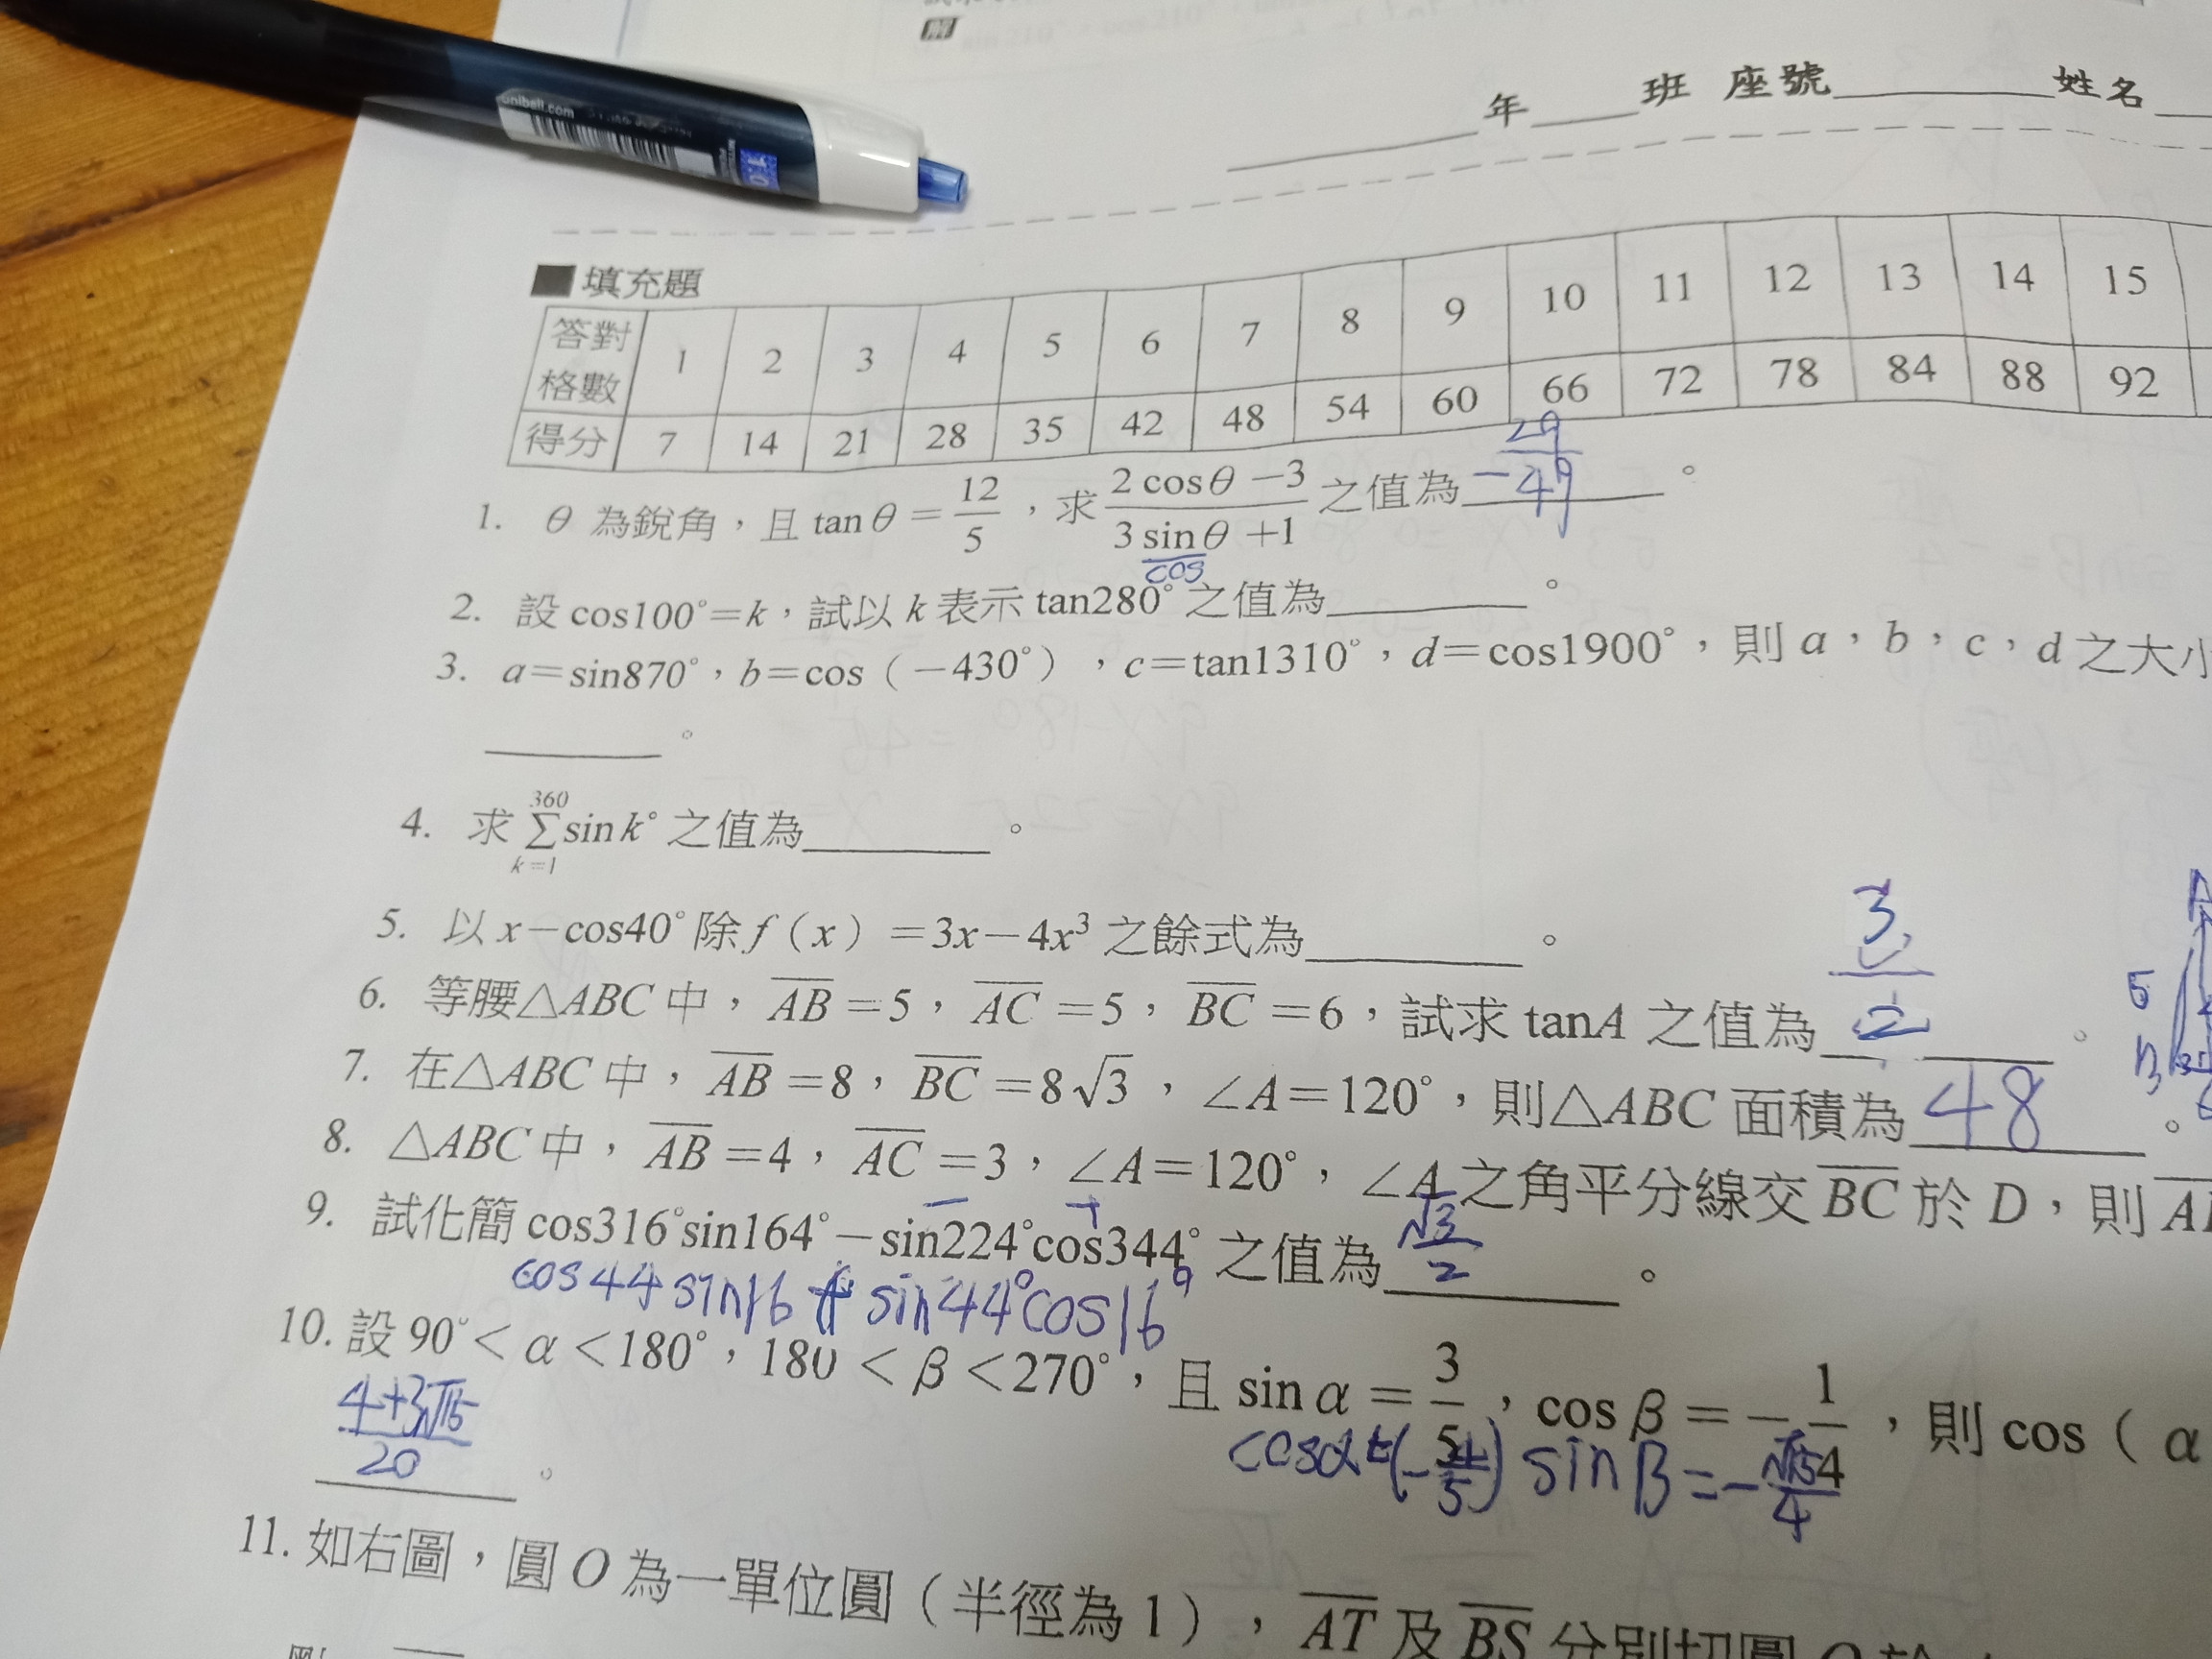 解
年 班 座號 姓名
uniball.com
1.0
■填充題
答對格數 1 2 3 4 5 6 7 8 9 10 11 12 13 14 15
得分 7 14 21 28 35 42 48 54 60 66 72 78 84 88 92
1. θ 為銳角，且 tanθ = 12/5 ，求 (2cosθ −3)/(3sinθ +1) 之值為 −29/49 。
cos
2. 設 cos100°=k，試以 k 表示 tan280° 之值為______。
3. a=sin870°，b=cos（−430°），c=tan1310°，d=cos1900°，則 a，b，c，d 之大小
______。
4. 求 Σ_{k=1}^{360} sin k° 之值為______。
5. 以 x−cos40° 除 f（x）=3x−4x³ 之餘式為______。
6. 等腰△ABC 中，AB=5，AC=5，BC=6，試求 tanA 之值為 3/2 。
7. 在△ABC 中，AB=8，BC=8√3，∠A=120°，則△ABC 面積為 48 。
8. △ABC 中，AB=4，AC=3，∠A=120°，∠A 之角平分線交 BC 於 D，則
9. 試化簡 cos316°sin164°−sin224°cos344° 之值為 √3/2 。
− +
cos44 sin16 + sin44°cos16°
10. 設 90°<α<180°，180<β<270°，且 sinα=3/5，cosβ=−1/4，則 cos（α
cosα=(−4/5) sinB=−√15/4
(4+3√15)/20 。
11. 如右圖，圓 O 為一單位圓（半徑為 1），AT 及 BS 分別切圓 O 於